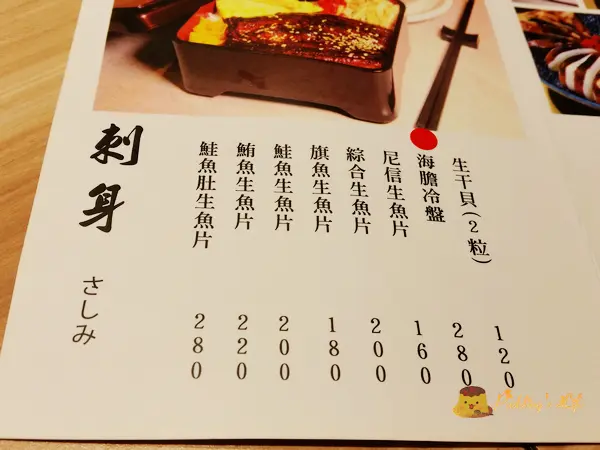 刺身 さしみ
鮭魚肚生魚片 280
鮪魚生魚片 220
鮭魚生魚片 200
旗魚生魚片 180
綜合生魚片 200
尼信生魚片 160
海膽冷盤 280
生干貝(2粒) 120